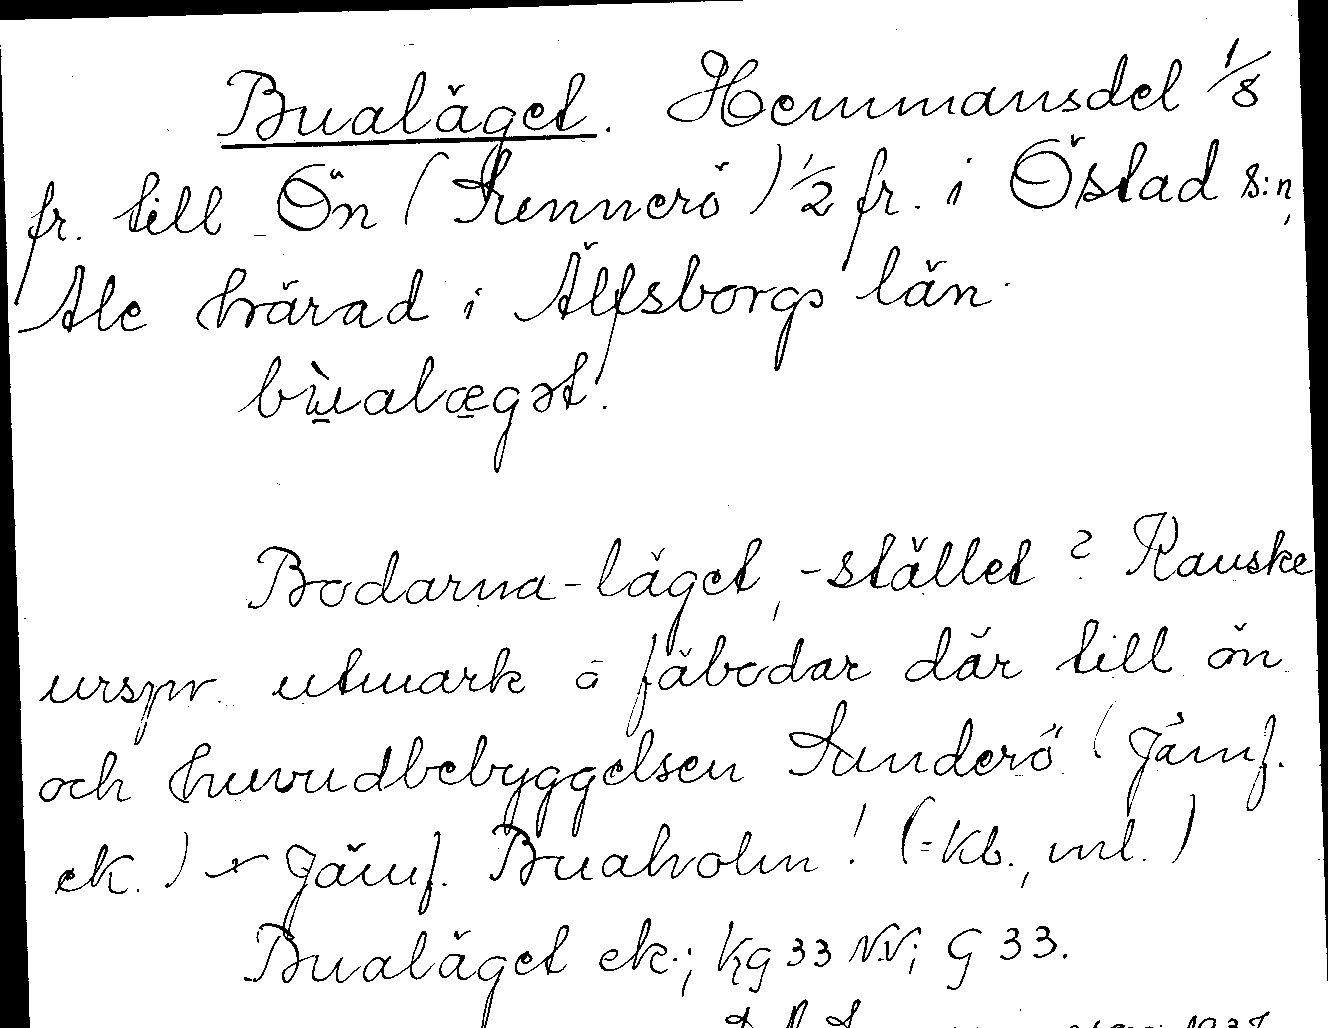 Bualäget. Hemmansdel 1/8
fr. till Ön (Sunnerö) 1/2 fr. i Östad s:n,
Ale härad i Älfsborgs län.
bùalægət.
Bodarna-läget, -stället? Kanske
urspr. utmark å fäbodar där till ön
och huvudbebyggelsen Sunderö (jämf.
ek.) Jämf. Buaholm! (=Kb., ml.)
Bualäget ek.; kg 33 NV; G 33.
1937